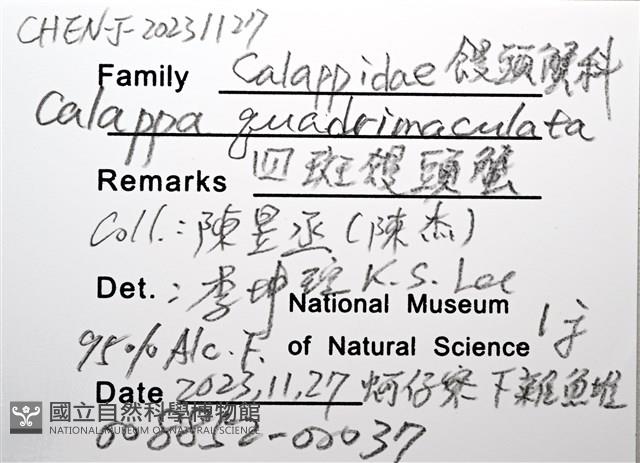 CHEN-J-20231127
Family Calappidae 饅頭蟹科
Calappa quadrimaculata
Remarks 四斑饅頭蟹
Coll.: 陳昱丞(陳杰)
Det.: 李坤瑄 K.S. Lee
National Museum
95% Alc. F. of Natural Science 1♀
Date 2023.11.27 蚵仔寮下雜魚堆
國立自然科學博物館
NATIONAL MUSEUM OF NATURAL SCIENCE
008052-00037